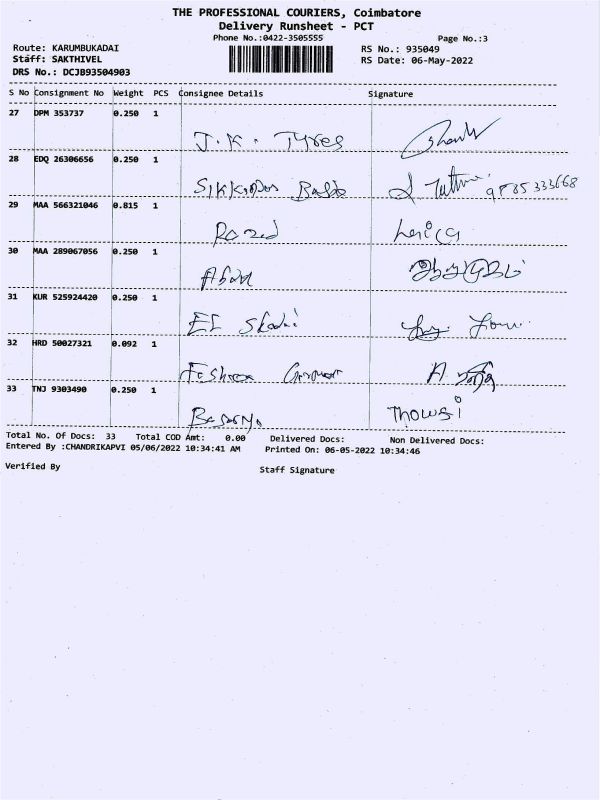 THE PROFESSIONAL COURIERS, Coimbatore
Delivery Runsheet - PCT
Phone No.:0422-3505555
Page No.:3
Route: KARUMBUKADAI
RS No.: 935049
Staff: SAKTHIVEL
RS Date: 06-May-2022
DRS No.: DCJB93504903
S No Consignment No Weight PCS Consignee Details Signature
27 DPM 353737 0.250 1
J.K. Tyres
28 EDQ 26306656 0.250 1
29 MAA 566321046 0.815 1
30 MAA 289067056 0.250 1
31 KUR 525924420 0.250 1
32 HRD 50027321 0.092 1
33 TNJ 9303490 0.250 1
Thowsi
Total No. Of Docs: 33 Total COD Amt: 0.00 Delivered Docs: Non Delivered Docs:
Entered By :CHANDRIKAPVI 05/06/2022 10:34:41 AM Printed On: 06-05-2022 10:34:46
Verified By
Staff Signature